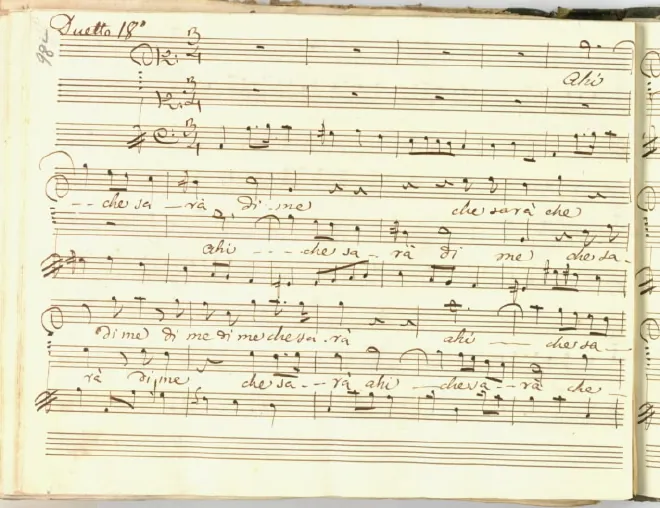 Duetto 18º
98
Ahi
- - che sa - rà di me che sarà che
ahi - - - che sa - rà di me che sa -
di me di me di me che sa - rà ahi - che sa -
rà di me che sa - - rà ahi - che sa - - rà che